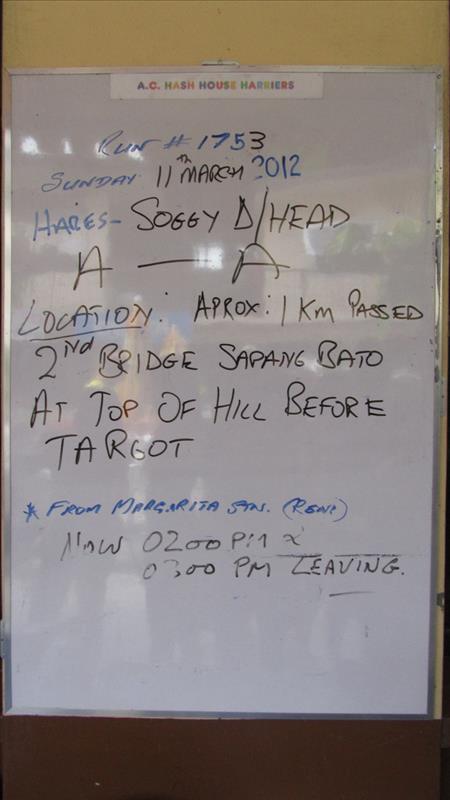 A.C. HASH HOUSE HARRIERS
RUN # 1753
SUNDAY 11TH MARCH 2012
HARES- SOGGY D/HEAD
A — A
LOCATION: APROX: 1 KM PASSED
2ND BRIDGE SAPANG BATO
AT TOP OF HILL BEFORE
TARGOT
* FROM MARGARITA STN. (RENE)
NOW 0200 PM &
0300 PM LEAVING.